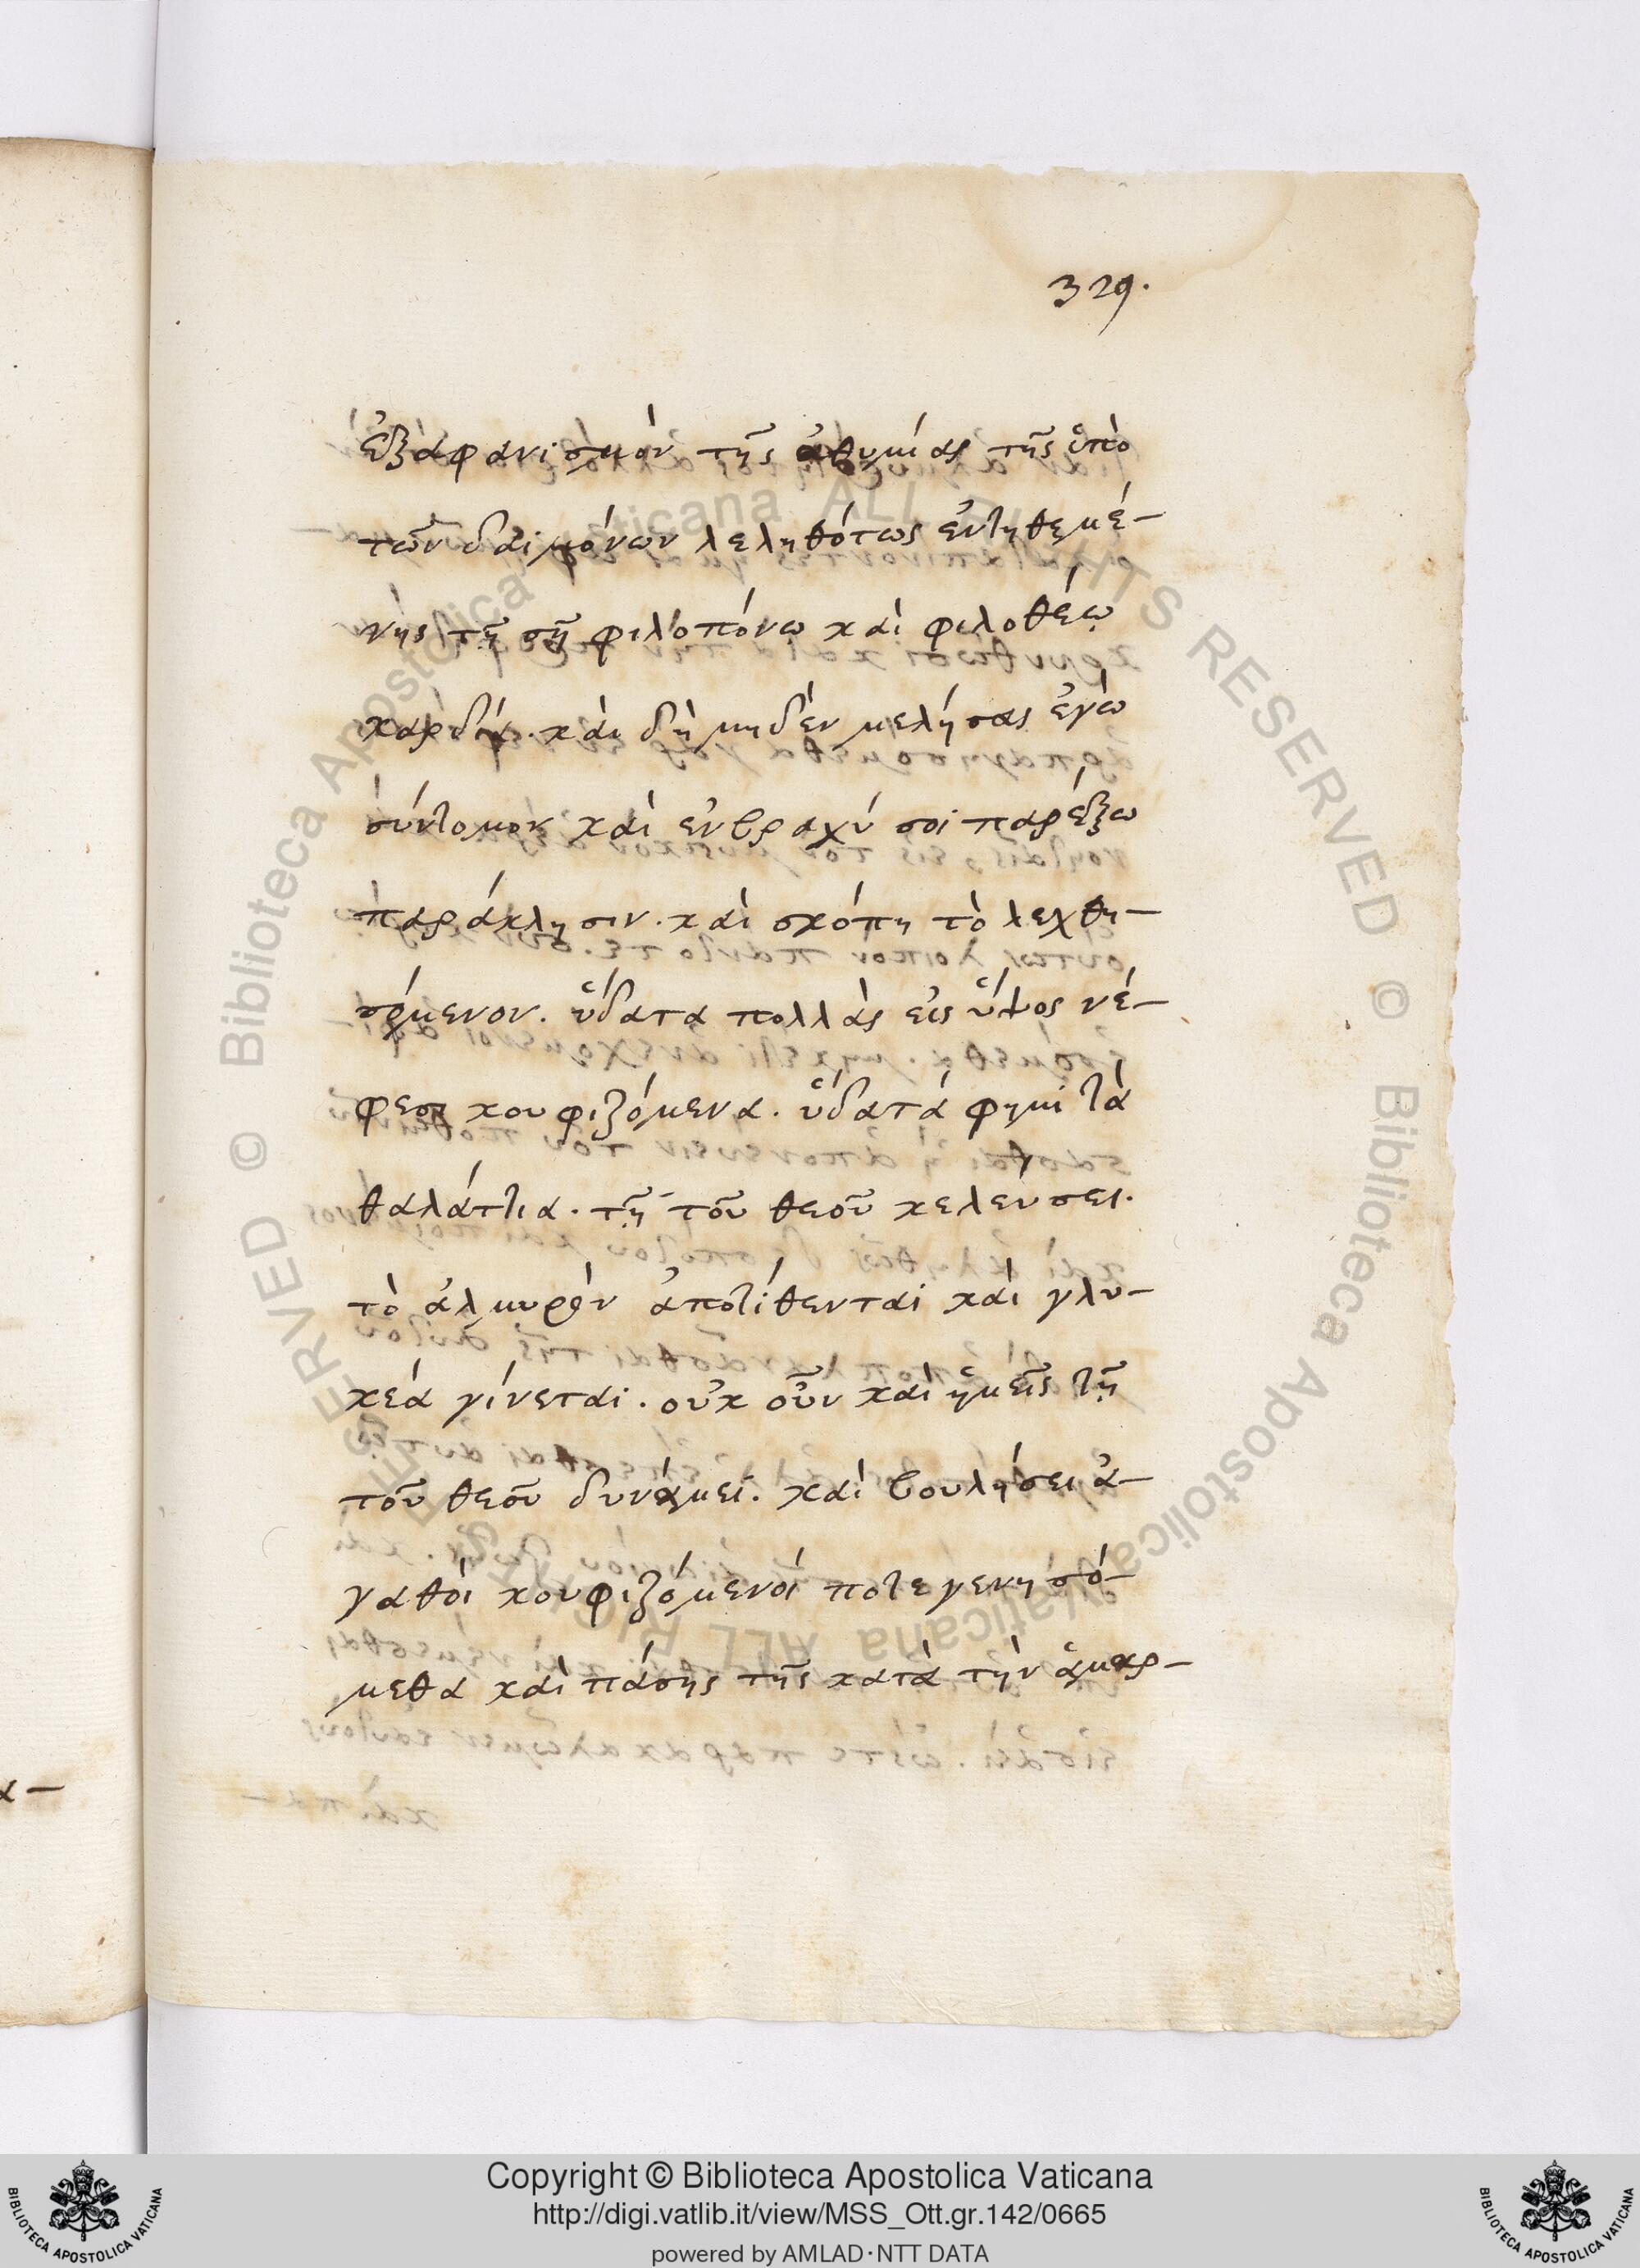 329.
ἐξαφανισμὸν τῆς ἀθυμίας τῆς ὑπὸ
τῶν δαιμόνων λεληθότως ἐντηθεμέ-
νης τῇ σῇ φιλοπόνω καὶ φιλοθέῳ
καρδίᾳ. καὶ δὴ μηδὲν μελήσας ἐγὼ
σύντομον καὶ ἐνβραχύ σοι παρέξω
παράκλησιν. καὶ σκόπη τὸ λεχθη-
σόμενον. ὕδατα πολλὰς εἰς ὕψος νέ-
φεσι κουφιζόμενα. ὕδατά φημι τὰ
θαλάττια. τῇ τοῦ θεοῦ κελεύσει.
τὸ ἁλμυρὸν ἀποτίθενται καὶ γλυ-
κέα γίνεται. οὐκ οὖν καὶ ἡμεῖς τῇ
τοῦ θεοῦ δυνάμει. καὶ βουλήσει ἀ-
γαθοὶ κουφιζόμενοί ποτε γενησό-
μεθα καὶ πάσης τῆς κατὰ τὴν ἁμαρ-
α-
Copyright © Biblioteca Apostolica Vaticana
http://digi.vatlib.it/view/MSS_Ott.gr.142/0665
powered by AMLAD·NTT DATA
BIBLIOTECA APOSTOLICA VATICANA
BIBLIOTECA APOSTOLICA VATICANA
© Biblioteca Apostolica Vaticana ALL RIGHTS RESERVED
© Biblioteca Apostolica Vaticana ALL RIGHTS RESERVED